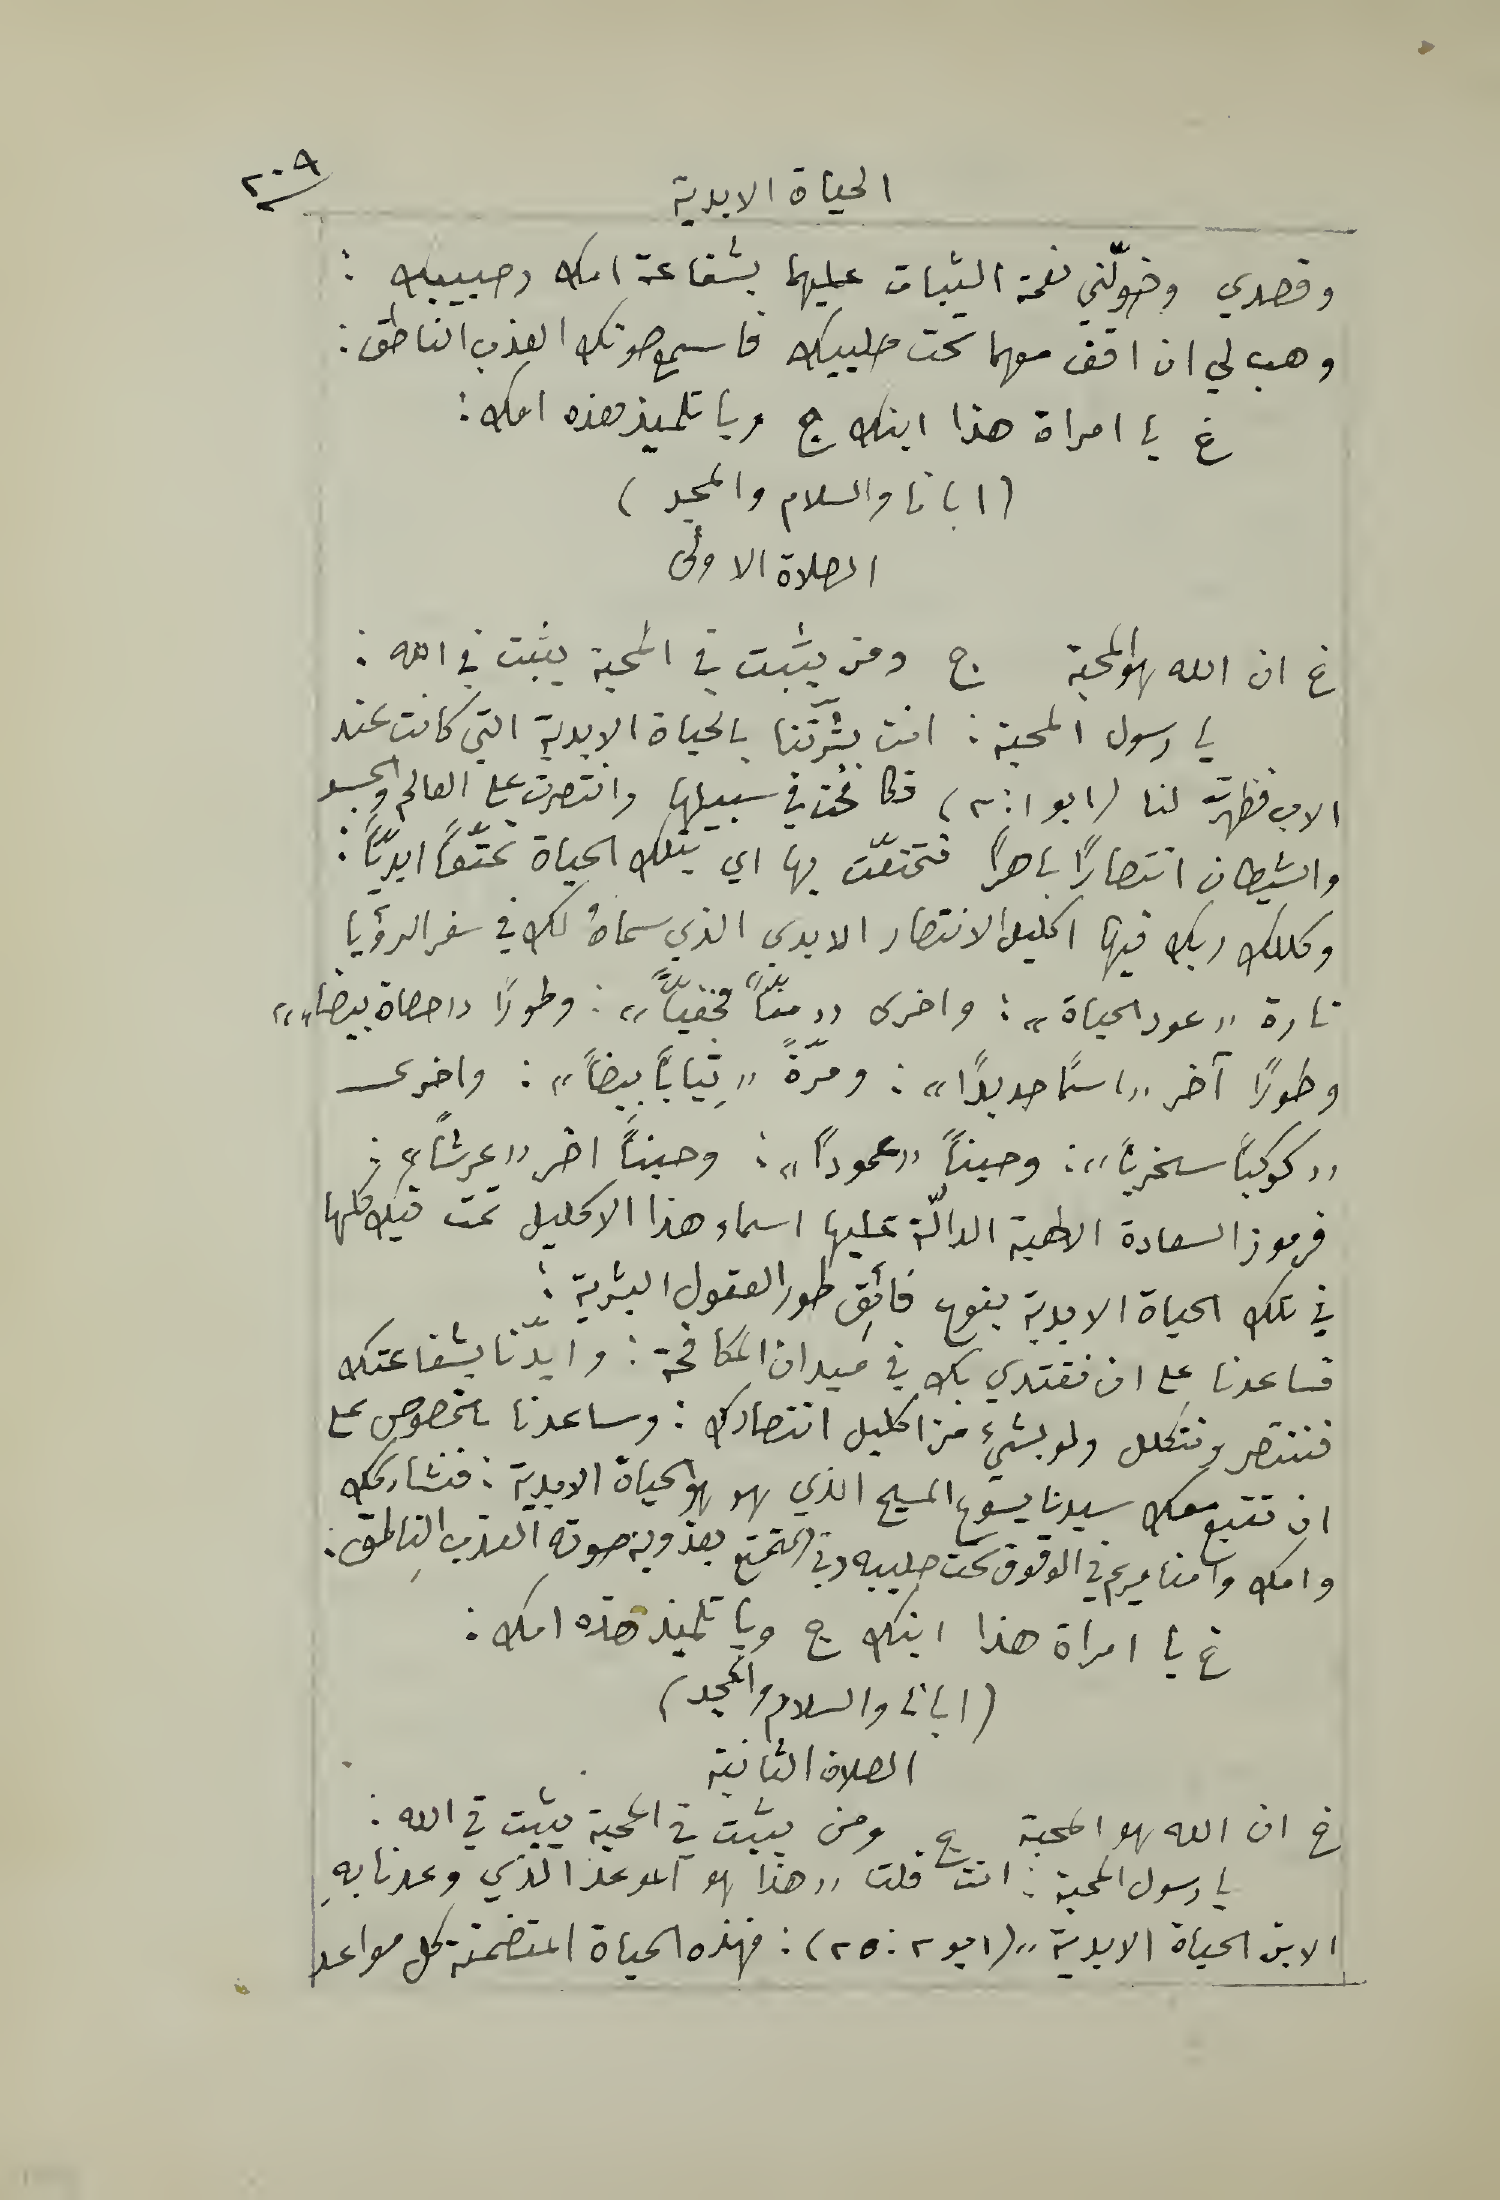 ٢٠٩
الحياة الابدية
وقصدي وخوّلني نعمة الثبات عليهما بشفاعة امك وحبيبك :
وهب لي ان اقف معهما تحت صليبك فاسمع صوتك العذب الناطق :
غ يا امراة هذا ابنك ج ويا تلميذ هذه امك :
(ابانا والسلام والمجد)
الصلاة الاولى
غ ان الله هو المحبة ج ومن يثبت في المحبة يثبت في الله :
يا رسول المحبة : انت بشّرتنا بالحياة الابدية التي كانت عند
الاب فظهرت لنا (ايو ١ : ٢) فكافحت في سبيلها وانتصرت على العالم والجسد
والشيطان انتصارًا باهرًا فتمتعّت بها اي بتلك الحياة تمتّعاً ابديّاً :
وكللك ربك فيها اكليل الانتصار الابدي الذي سماهُ لك في سفر الرؤيا
تارة «عود الحياة» : واخرى «منّاً مخفيّاً» : وطورًا «حصاة بيضاء»
وطورًا آخر «اسمًا جديدًا» : ومرّةً «ثِياباً بيضاً» : واخرى
«كوكباً سخرياً» : وحيناً «عموداً» : وحيناً اخر «عرشاً» :
فرموز السعادة الالهية الدالّة عليها اسماء هذا الاكليل تمت فيك كلها
في تلك الحياة الابدية بنوع فائِق طور العقول البشرية :
فساعدنا على ان نقتدي بك في ميدان المكافحة : وايدّنا بشفاعتك
فننتصر ونتكلل ولو بشيءٍ من اكليل انتصارك : وساعدنا بالخصوص على
ان نتبع معك سيدنا يسوع المسيح الذي هو هو الحياة الابدية : فنشاركك
وامك وامنا مريم في الوقوف تحت صليبه وفي التمتع بعذوبة صوته العذب الناطق :
غ يا امراة هذا ابنك ج ويا تلميذ هذه امك :
(ابانا والسلام والمجد)
الصلاة الثانية
غ ان الله هو المحبة ج ومن يثبت في المحبة يثبت في الله :
يا رسول المحبة : انت قلت «هذا هو الموعد الذي وعدنا بهِ
الابن الحياة الابدية» (ايو ٢ : ٢٥) : فهذه الحياة المتضمنة كل مواعد